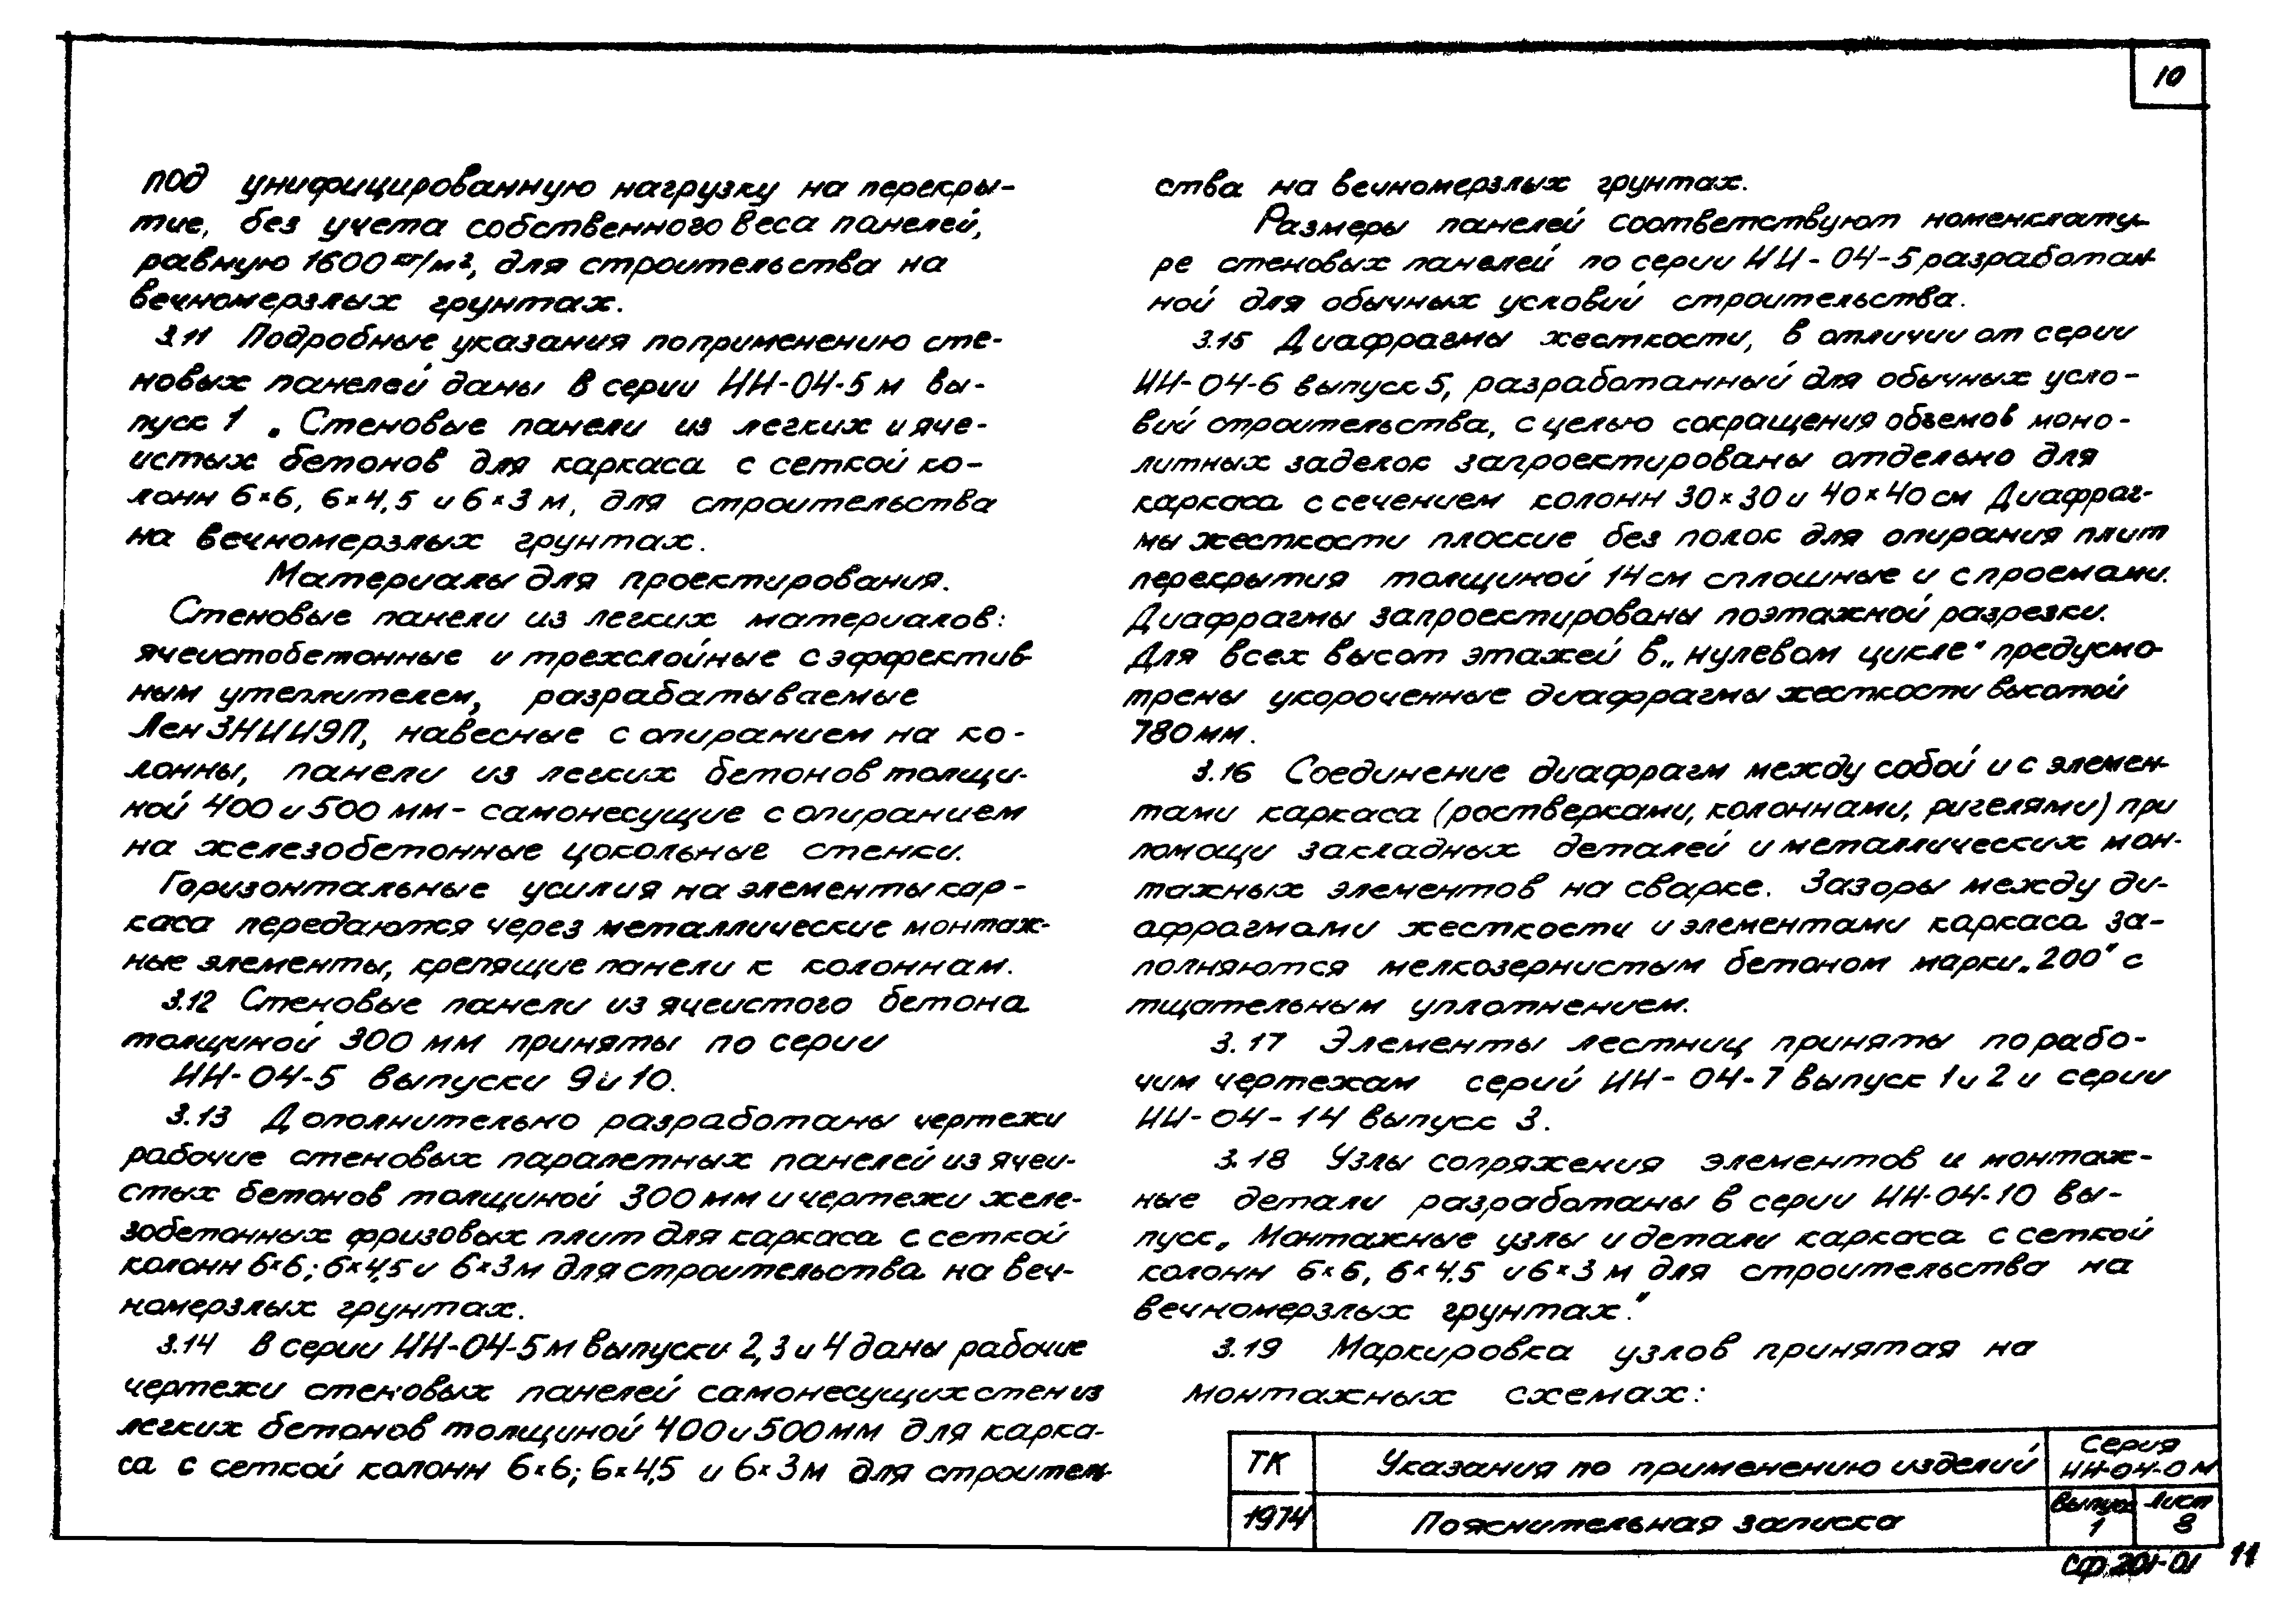 10
под унифицированную нагрузку на перекры-
тие, без учета собственного веса панелей,
равную 1600 кг/м², для строительства на
вечномерзлых грунтах.
3.11 Подробные указания по применению сте-
новых панелей даны в серии ИИ-04-5м вы-
пуск 1 „Стеновые панели из легких и яче-
истых бетонов для каркаса с сеткой ко-
лонн 6×6, 6×4,5 и 6×3 м, для строительства
на вечномерзлых грунтах.
Материалы для проектирования.
Стеновые панели из легких материалов:
ячеистобетонные и трехслойные с эффектив-
ным утеплителем, разрабатываемые
ЛенЗНИИЭП, навесные с опиранием на ко-
лонны, панели из легких бетонов толщи-
ной 400 и 500 мм - самонесущие с опиранием
на железобетонные цокольные стенки.
Горизонтальные усилия на элементы кар-
каса передаются через металлические монтаж-
ные элементы, крепящие панели к колоннам.
3.12 Стеновые панели из ячеистого бетона
толщиной 300 мм приняты по серии
ИИ-04-5 выпуски 9 и 10.
3.13 Дополнительно разработаны чертежи
рабочие стеновых парапетных панелей из ячеи-
стых бетонов толщиной 300 мм и чертежи желе-
зобетонных фризовых плит для каркаса с сеткой
колонн 6×6; 6×4,5 и 6×3м для строительства на веч-
номерзлых грунтах.
3.14 В серии ИИ-04-5м выпуски 2, 3 и 4 даны рабочие
чертежи стеновых панелей самонесущих стен из
легких бетонов толщиной 400 и 500 мм для карка-
са с сеткой колонн 6×6; 6×4,5 и 6×3м для строитель-
ства на вечномерзлых грунтах.
Размеры панелей соответствуют номенклату-
ре стеновых панелей по серии ИИ-04-5 разработан-
ной для обычных условий строительства.
3.15 Диафрагмы жесткости, в отличии от серии
ИИ-04-6 выпуск 5, разработанный для обычных усло-
вий строительства, с целью сокращения объемов моно-
литных заделок запроектированы отдельно для
каркаса с сечением колонн 30×30 и 40×40 см Диафраг-
мы жесткости плоские без полок для опирания плит
перекрытия толщиной 14 см сплошные и с проемами.
Диафрагмы запроектированы поэтажной разрезки.
Для всех высот этажей в „нулевом цикле" предусмо-
трены укороченные диафрагмы жесткости высотой
780 мм.
3.16 Соединение диафрагм между собой и с элемен-
тами каркаса (ростверками, колоннами, ригелями) при
помощи закладных деталей и металлических мон-
тажных элементов на сварке. Зазоры между ди-
афрагмами жесткости и элементами каркаса за-
полняются мелкозернистым бетоном марки „200" с
тщательным уплотнением.
3.17 Элементы лестниц приняты по рабо-
чим чертежам серий ИИ-04-7 выпуск 1 и 2 и серии
ИИ-04-14 выпуск 3.
3.18 Узлы сопряжения элементов и монтаж-
ные детали разработаны в серии ИИ-04-10 вы-
пуск „Монтажные узлы и детали каркаса с сеткой
колонн 6×6, 6×4.5 и 6×3 м для строительства на
вечномерзлых грунтах."
3.19 Маркировка узлов принятая на
монтажных схемах:
ТК Указания по применению изделий Серия ИИ-04-0м
1974 Пояснительная записка Выпуск 1 Лист 8
сф.201-01 11